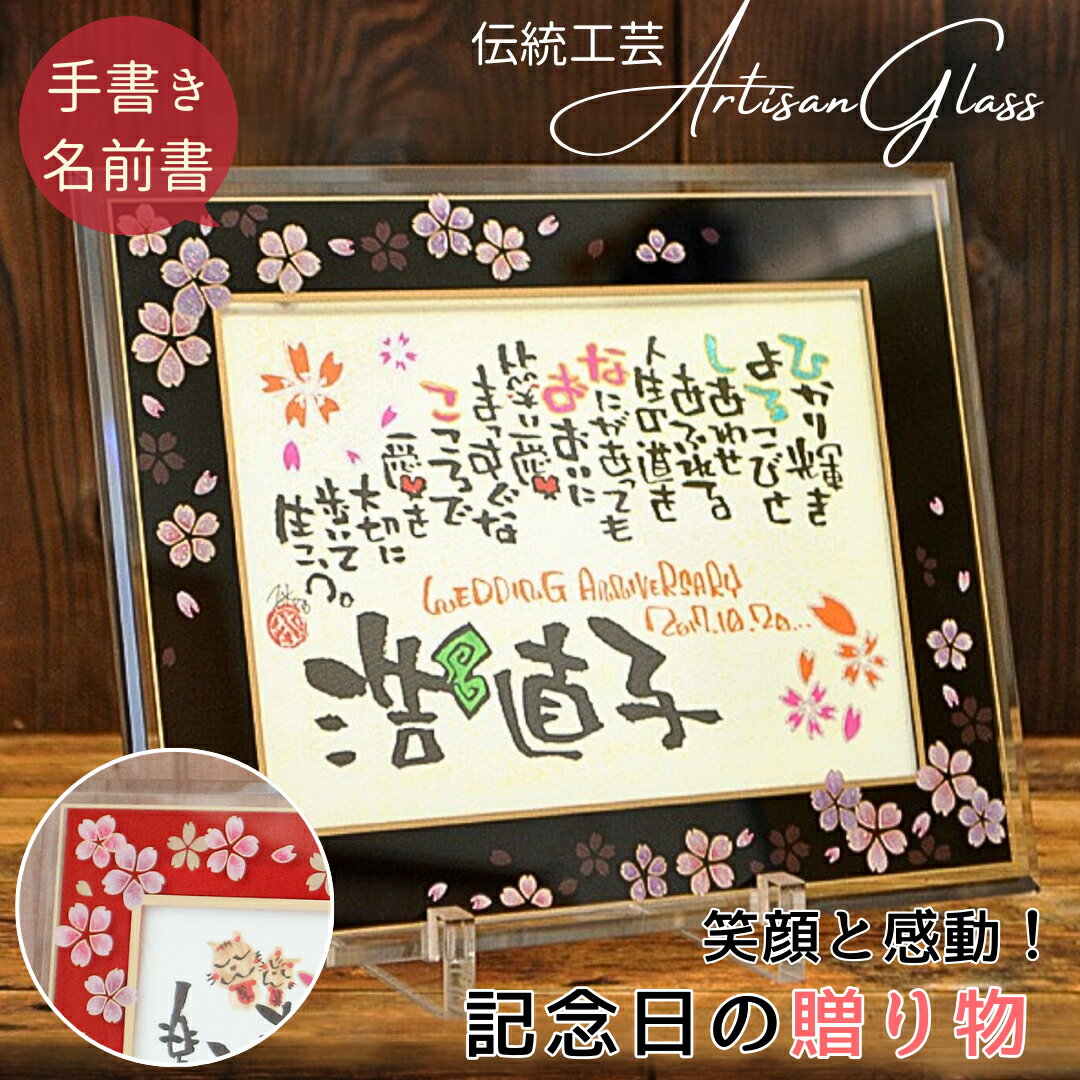 手書き
名前書
伝統工芸
Artisan Glass
ひかり輝き
よろこびと
しあわせ
あふれてる
人生の道を
なにがあっても
おおいに
笑い愛
まっすぐな
こころで
愛を
大切に
歩いて
生こう。
WEDDING ANNIVERSARY
2017.10.20...
浩 直子
笑顔と感動！
記念日の贈り物